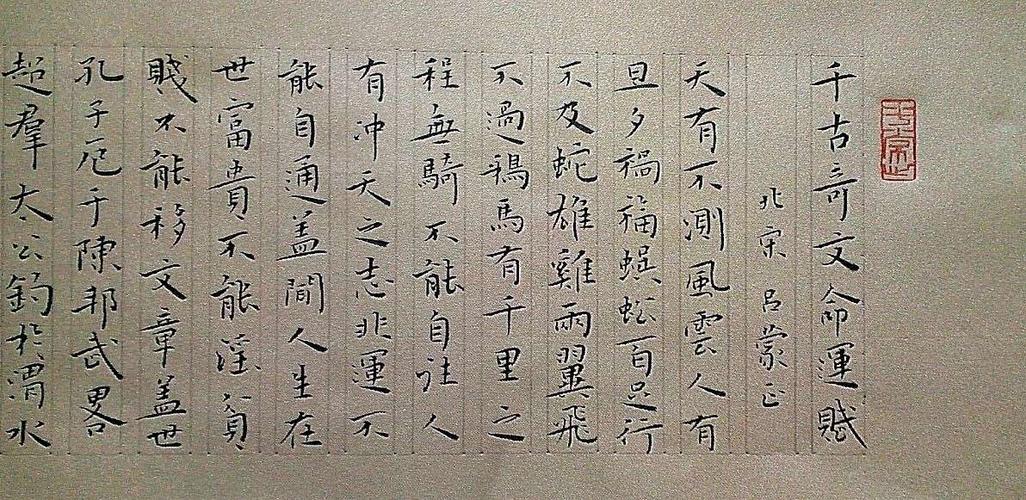 千古奇文命運賦
北宋 呂蒙正
天有不測風雲人有
旦夕禍福蜈蚣百足行
不及蛇雄雞兩翼飛
不過鴉馬有千里之
程無騎不能自往人
有沖天之志非運不
能自通蓋聞人生在
世富貴不能淫貧
賤不能移文章蓋世
孔子厄于陳邦武畧
超羣太公釣於渭水